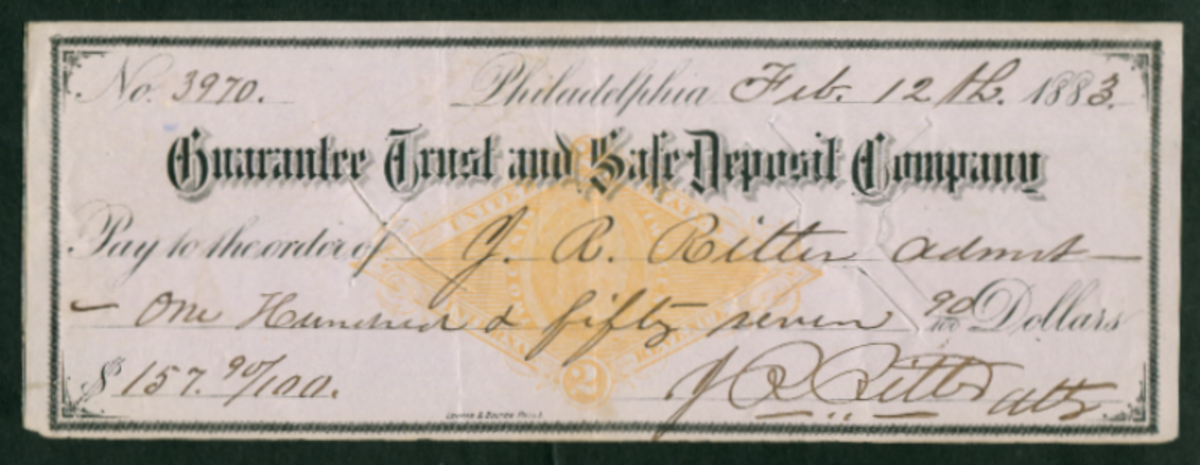 No. 3970. Philadelphia Feb. 12th. 1883.
Guarantee Trust and Safe Deposit Company
Pay to the order of J. R. Ritter admst
One Hundred & fifty seven 90/100 Dollars
$157. 90/100.
J R Ritter atty
2